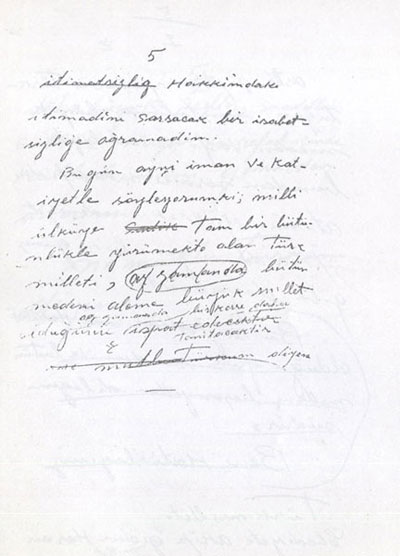 5
itimatsizliq Hakkımdaki
itimadını sarsacak bir isabet-
sizliğe uğramadım.
Bugün aynı iman ve kat-
iyetle söyleyorumki; milli
ülküye tam bir bütü-
nlükle yürümekte olan türk
milleti, az zamanda, bütün
medeni aleme büyük millet
az zamanda bir kerre daha
olduğunu ispat edecektir
tanıtacaktır
diyen